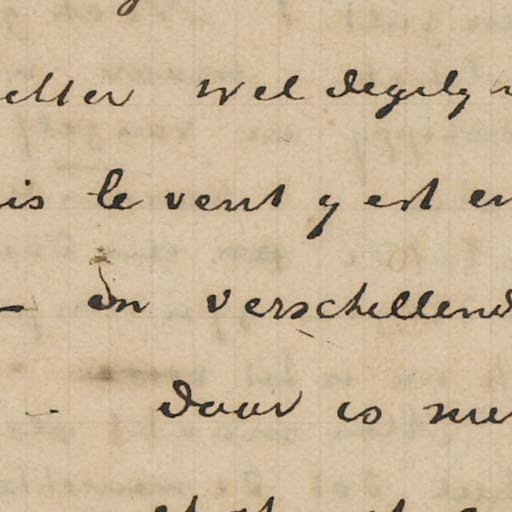 etter wel degelijk
is le vent y est en
— en verschillend
- daar is me